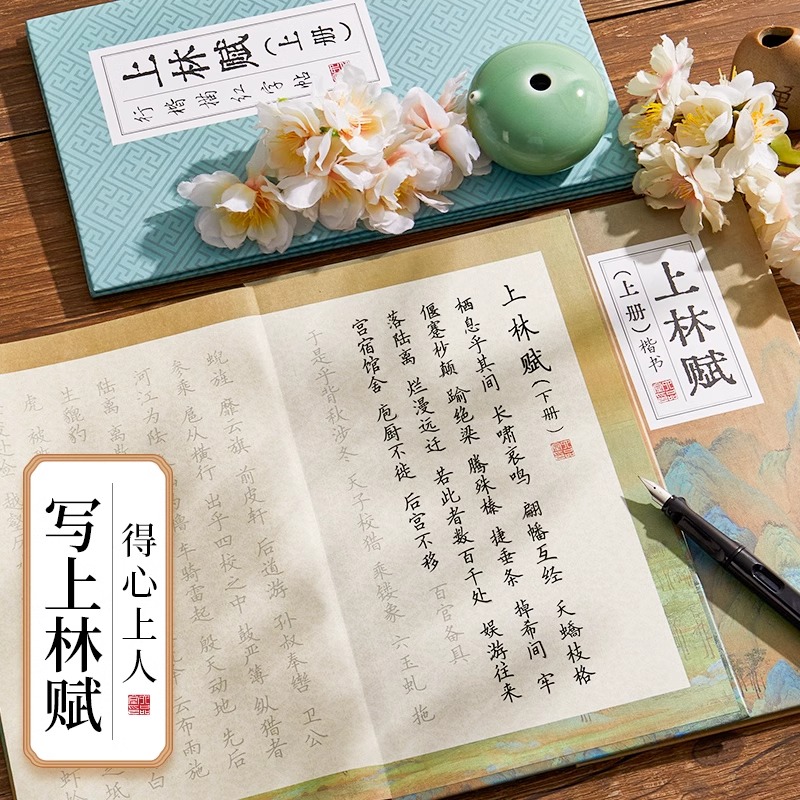 上林赋(上册)
行楷描红字帖
上林赋
(上册)楷书
上林赋(下册)
栖息乎其间 长啸哀鸣 翩幡互经 夭蟜枝格
偃蹇杪颠 踰绝梁 腾殊榛 捷垂条 掉希间 牢
落陆离 烂漫远迁 若此者数百千处 娱游往来
宫宿馆舍 庖厨不徙 后宫不移 百官备具
于是乎背秋涉冬 天子校猎 乘镂象 六玉虬 拖
蜺旌 靡云旗 前皮轩 后道游 孙叔奉辔 卫公
参乘 扈从横行 出乎四校之中 鼓严簿 纵猎者
河江为阹 橹 车骑雷起 殷天动地 先后
陆离 离 云布雨施
生貔豹
得心上人
写上林赋